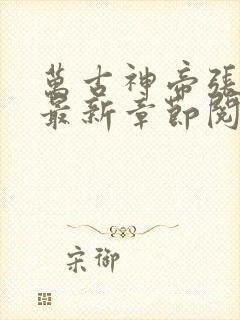 萬古神帝張
最新章節閱
宋御